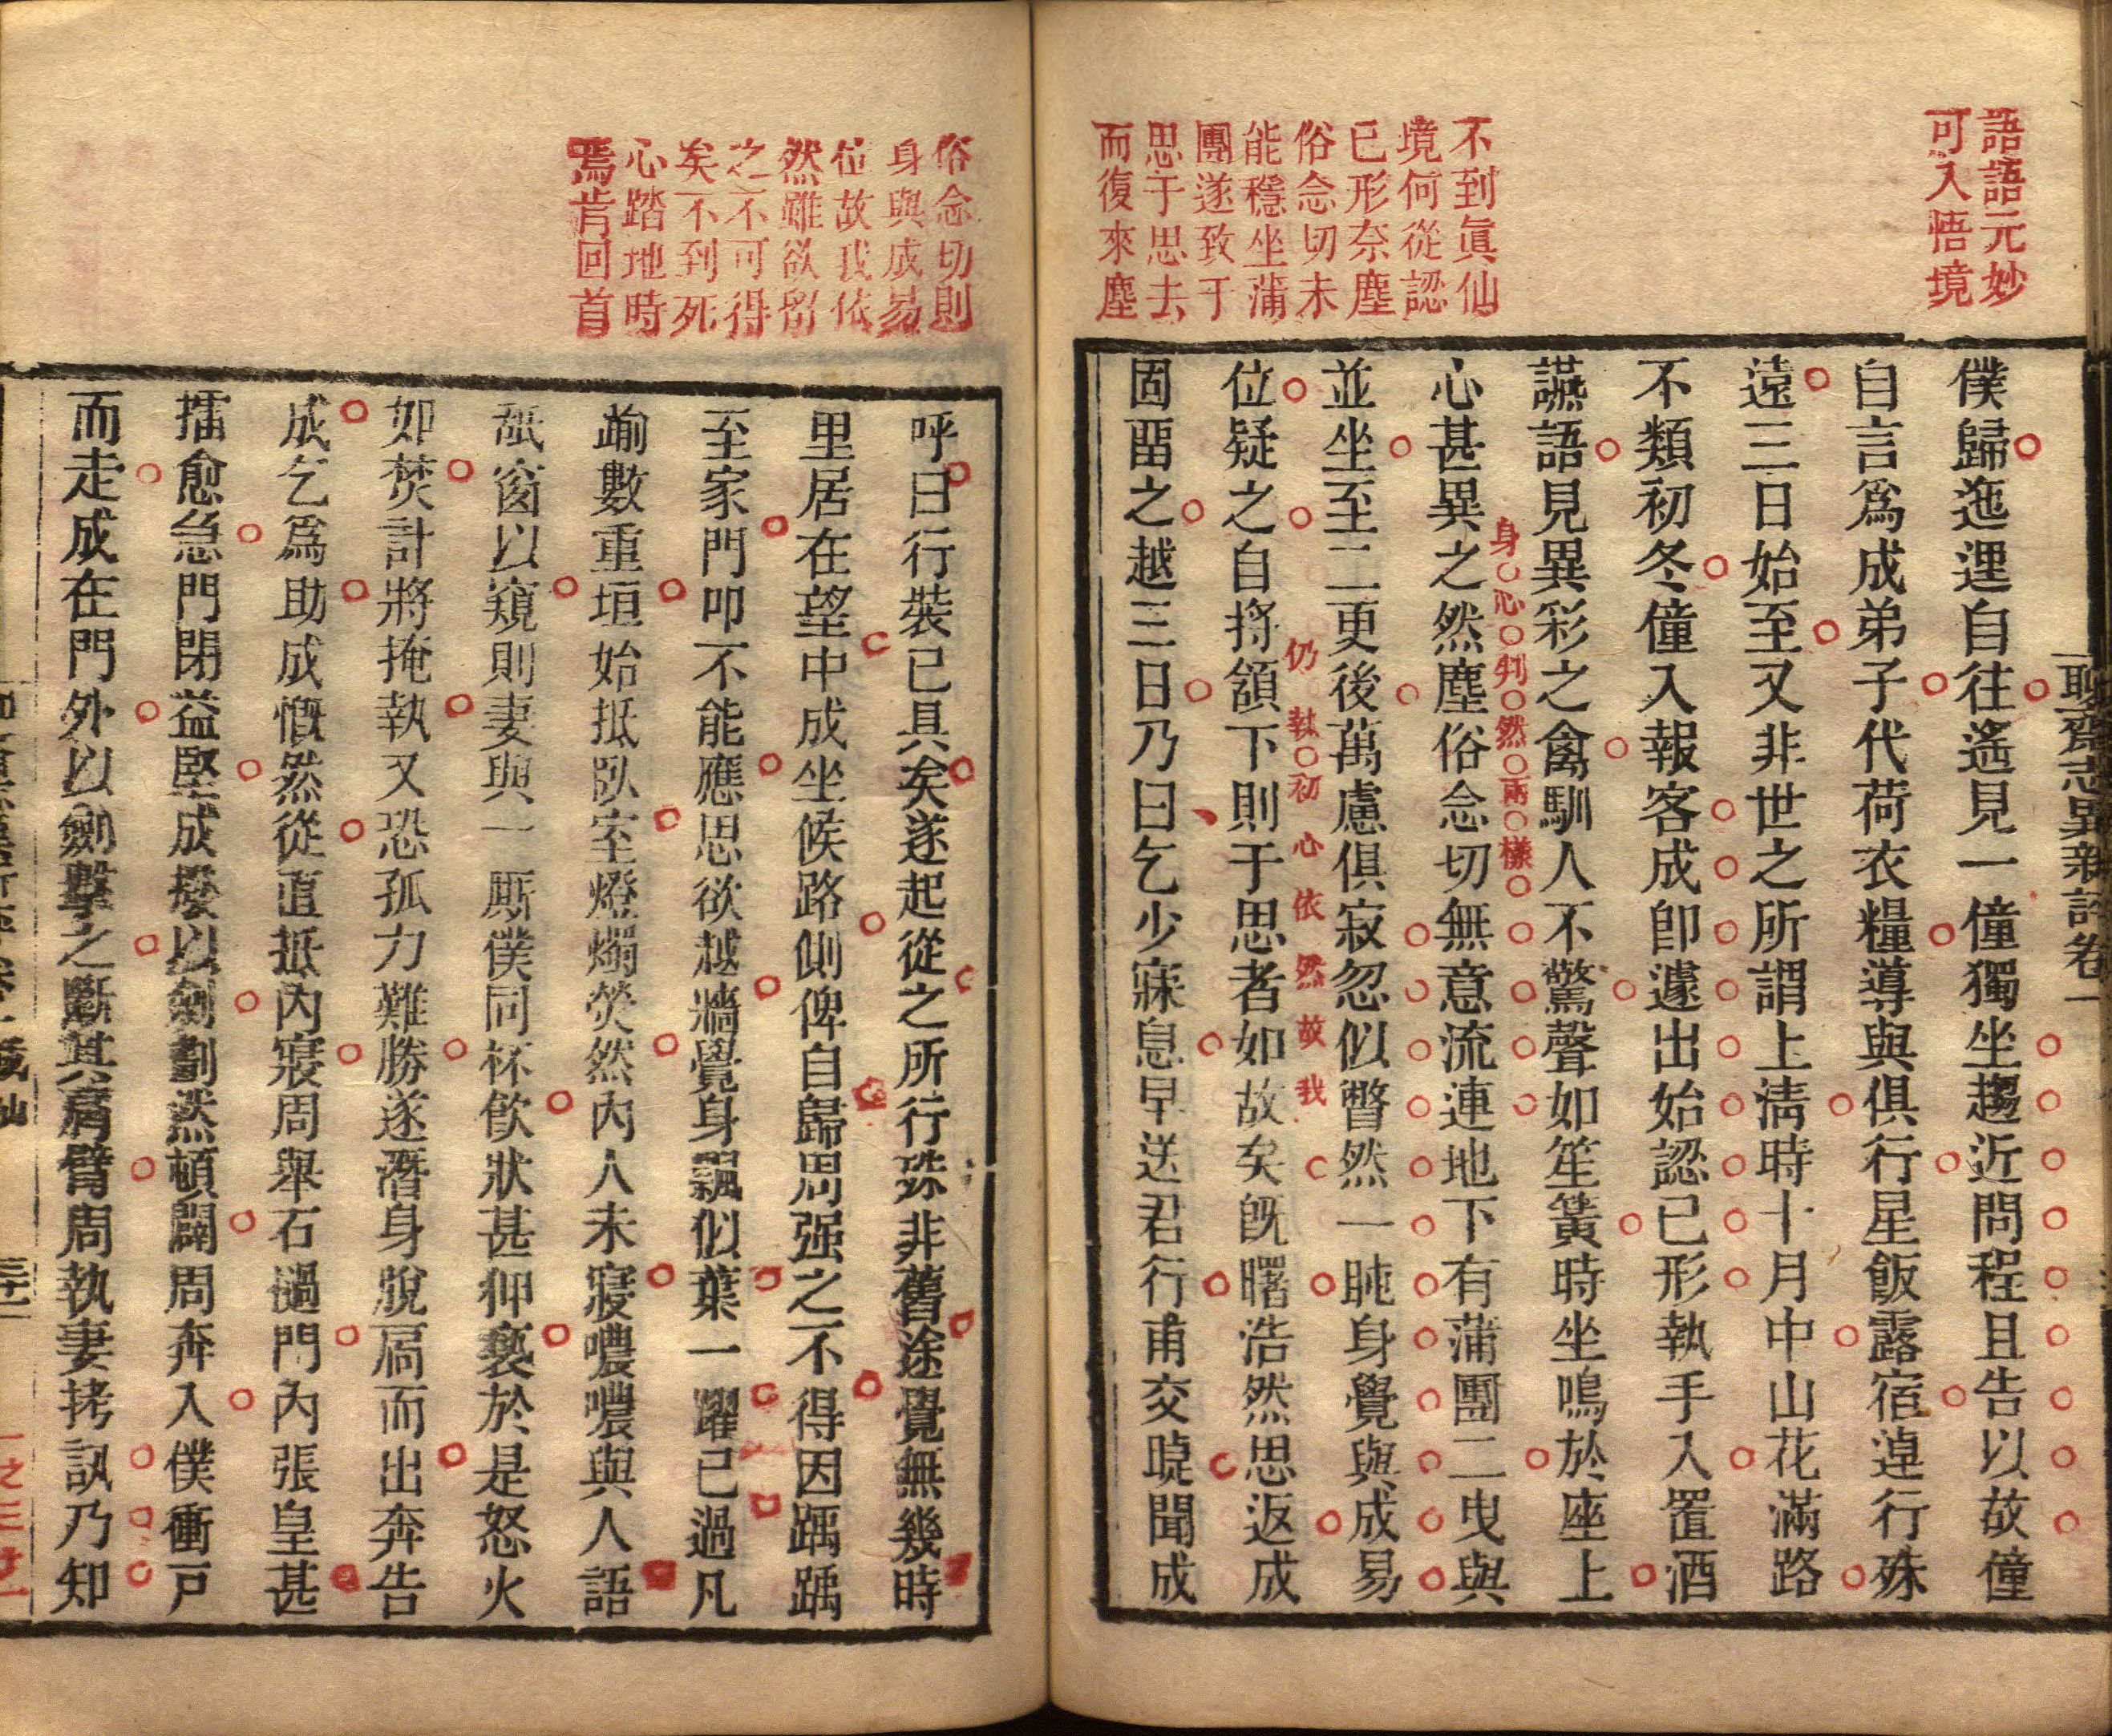 語語元妙
可入悟境
不到眞仙
境何從認
已形奈塵
俗念切未
能穩坐蒲
團遂致于
思于思去
而復來塵
聊齋志異新評卷一
僕歸迤逦自往遙見一僮獨坐趨近問程且告以故僮
自言爲成弟子代荷衣糧導與俱行星飯露宿逴行殊
遠三日始至又非世之所謂上淸時十月中山花滿路
不類初冬僮入報客成卽遽出始認己形執手入置酒
讌語見異彩之禽馴人不驚聲如笙簧時坐鳴於座上
身心判然兩樣
心甚異之然塵俗念切無意流連地下有蒲團二曳與
並坐至二更後萬慮俱寂忽似瞥然一盹身覺與成易
仍執初心依然故我
位疑之自捋頷下則于思者如故矣旣曙浩然思返成
固畱之越三日乃曰乞少寐息早送君行甫交睫聞成
俗念切則
身與成易
位故我依
然雖欲留
之不可得
矣不到死
心踏地時
焉肯回首
呼曰行裝已具矣遂起從之所行殊非舊途覺無幾時
里居在望中成坐候路側俾自歸周强之不得因踽踽
至家門叩不能應思欲越牆覺身飄似葉一躍已過凡
踰數重垣始抵臥室燈燭熒然內人未寢噥噥與人語
舐窗以窺則妻與一厮僕同杯飮狀甚狎褻於是怒火
如焚計將掩執又恐孤力難勝遂潛身脫扃而出奔告
成乞爲助成慨然從直抵內寢周舉石撾門內張皇甚
擂愈急門閉益堅成撥以劍劃然頓闢周奔入僕衝戶
而走成在門外以劍擊之斷其肩臂周執妻拷訊乃知